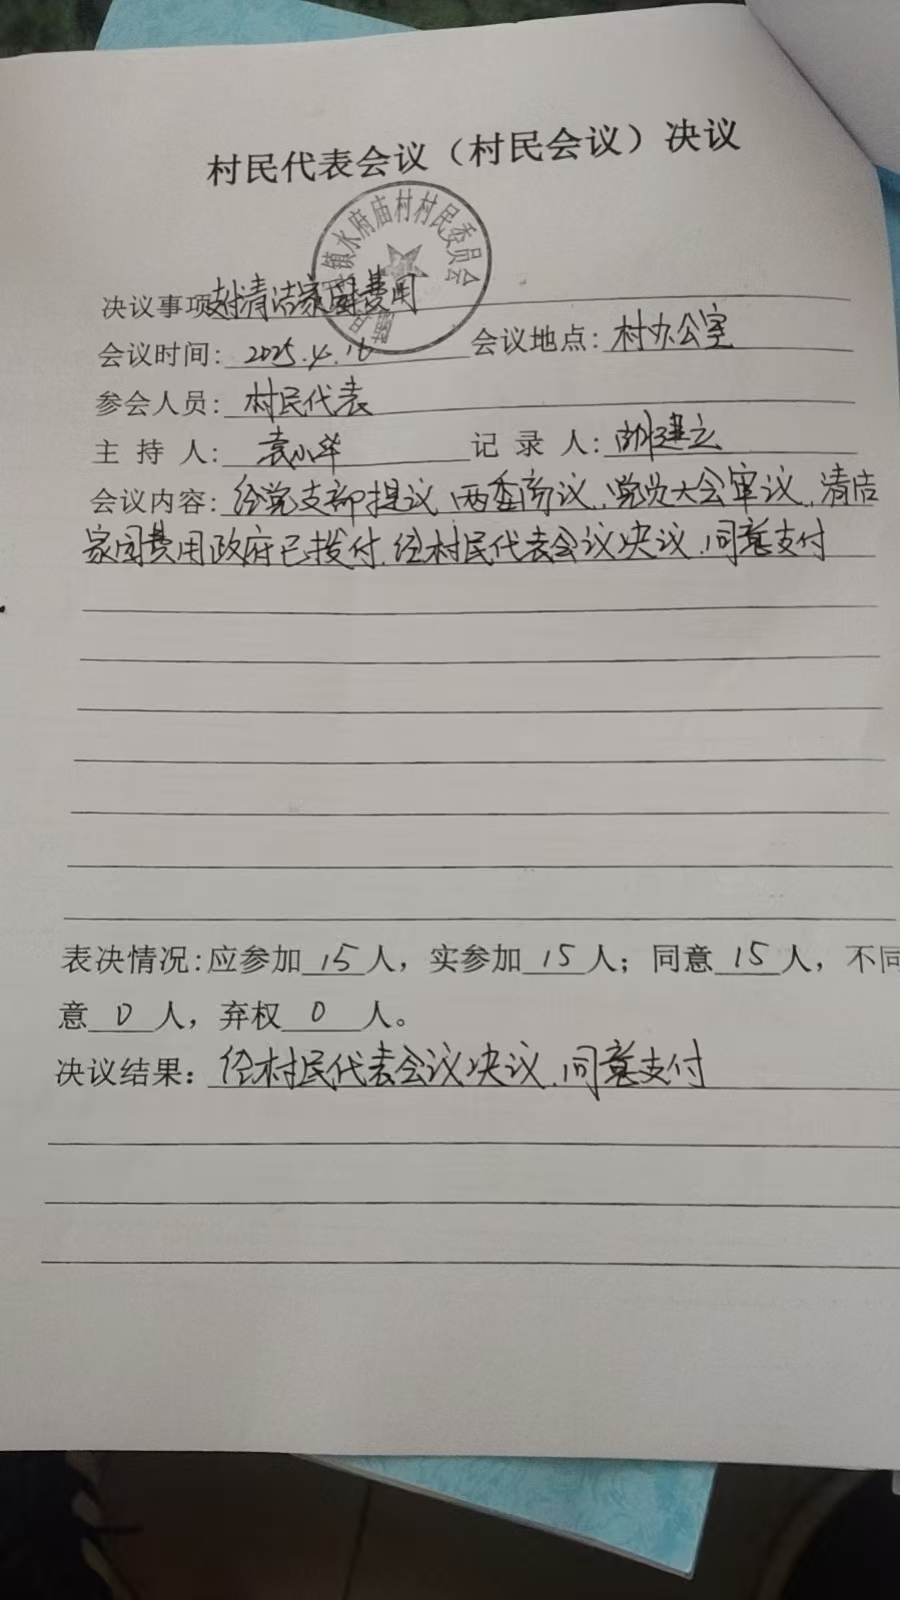 村民代表会议（村民会议）决议
镇水府庙村村民委员会
决议事项 付清洁家园费用
会议时间: 2025.4.16 会议地点: 村办公室
参会人员: 村民代表
主 持 人: 袁小华 记 录 人: 胡建立
会议内容: 经党支部提议、两委商议、党员大会审议、清洁
家园费用政府已拨付.经村民代表会议决议.同意支付
表决情况:应参加15人，实参加15人；同意15人，不同
意0人，弃权0人。
决议结果：经村民代表会议决议.同意支付